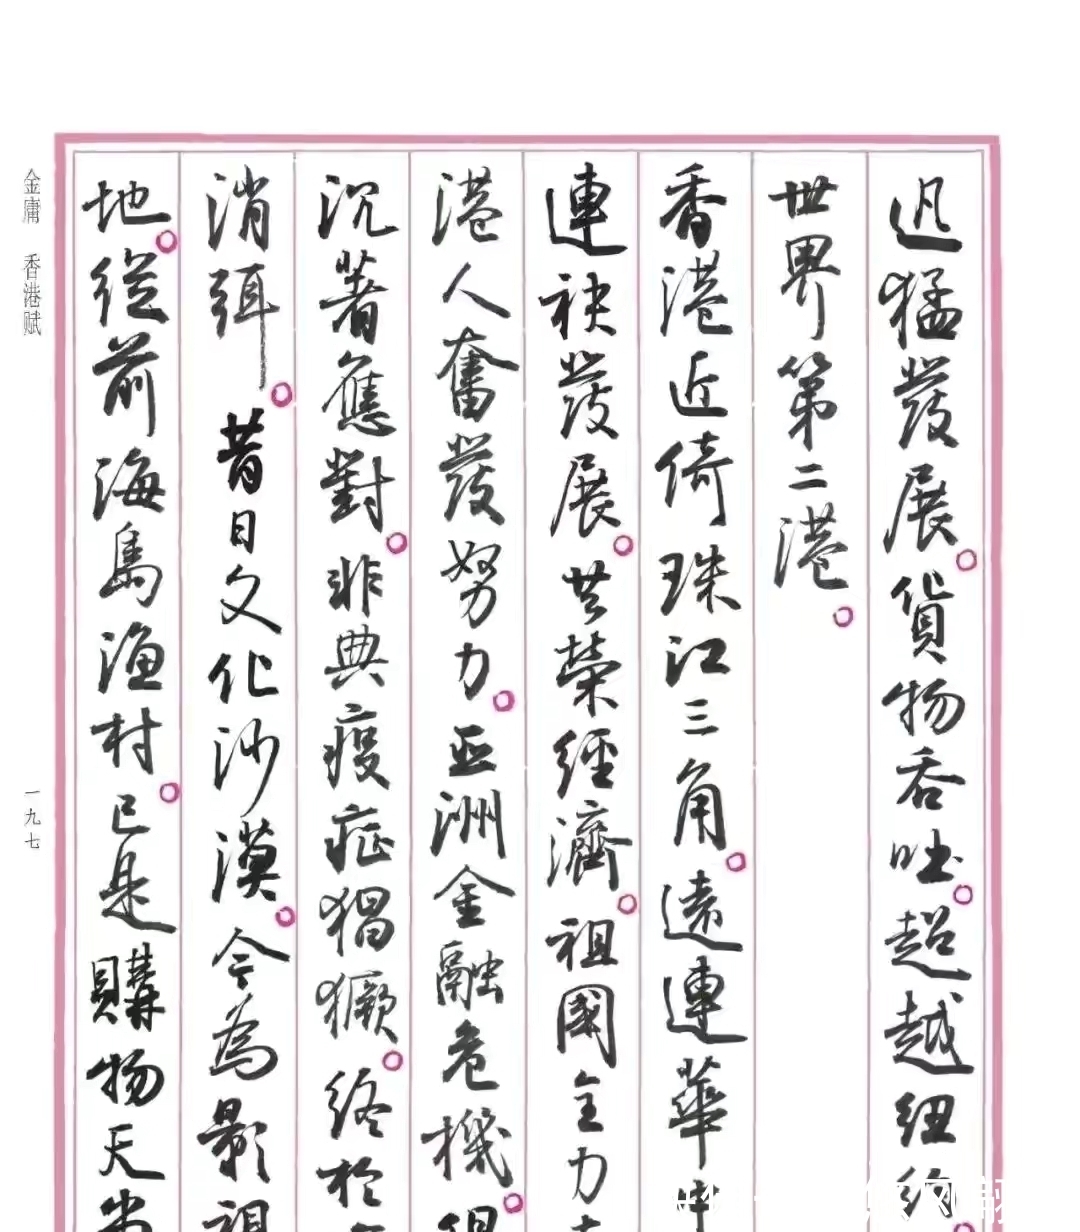 迅猛發展。貨物吞吐。超越紐
世界第二港。
香港近倚珠江三角。遠連華
連袂發展。共榮經濟。祖國全力
港人奮發努力。亞洲金融危機。
沉著應對。非典疫症猖獗。終於
消弭。昔日文化沙漠。今為影
地。從前海島漁村。已是購物天
金庸 香港赋
一九七